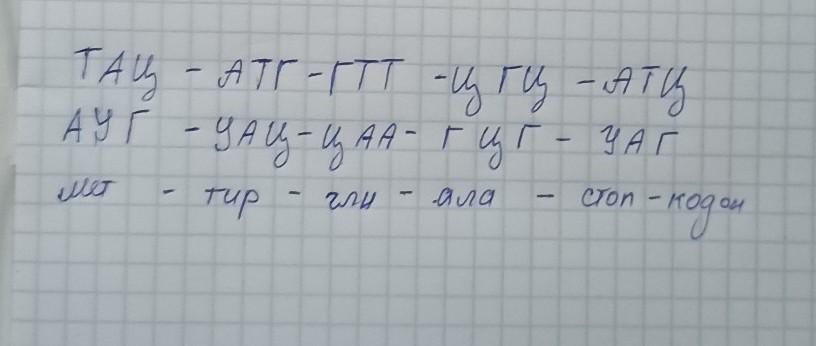 ТАЦ - АТГ - ГТТ - ЦГЦ - АТЦ
АУГ - УАЦ - ЦАА - ГЦГ - УАГ
мет - тир - глн - ала - стоп - кодон